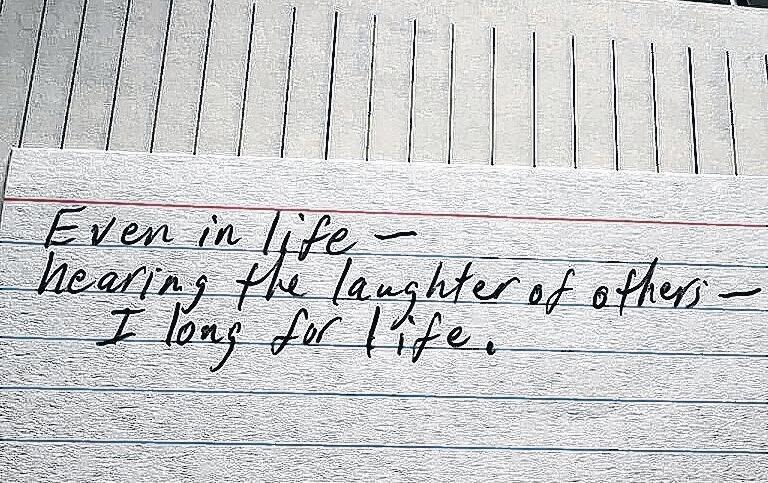 Even in life —
hearing the laughter of others —
I long for life.